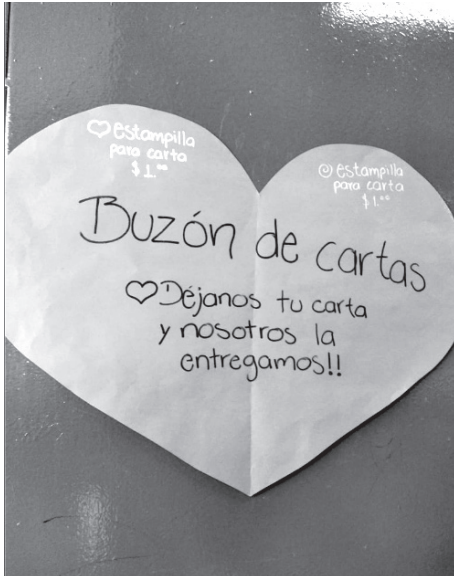 ♡estampilla
para carta
$1.⁰⁰
☺estampilla
para carta
$1.⁰⁰
Buzón de cartas
♡Déjanos tu carta
y nosotros la
entregamos!!